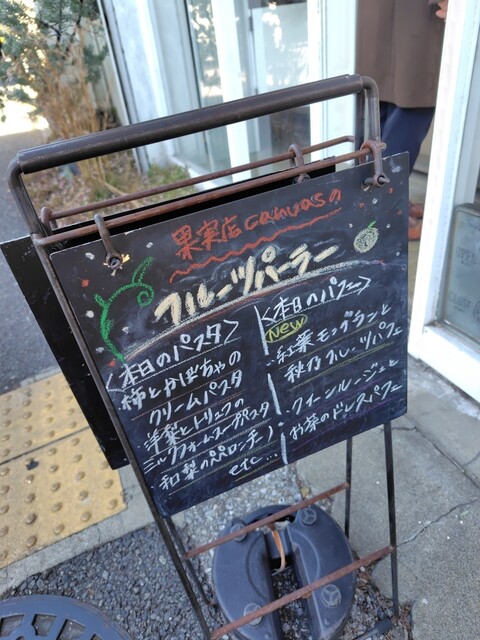 果実店canvasの
フルーツパーラー
<本日のパスタ>
柿とかぼちゃの
クリームパスタ
・洋梨とトリュフの
ミルクフォームスープパスタ
・和梨のペペロンチーノ
etc...
<本日のパフェ>
New
・紅葉モンブランと
秋のフルーツパフェ
・クイーンルージュと
お茶のドレスパフェ